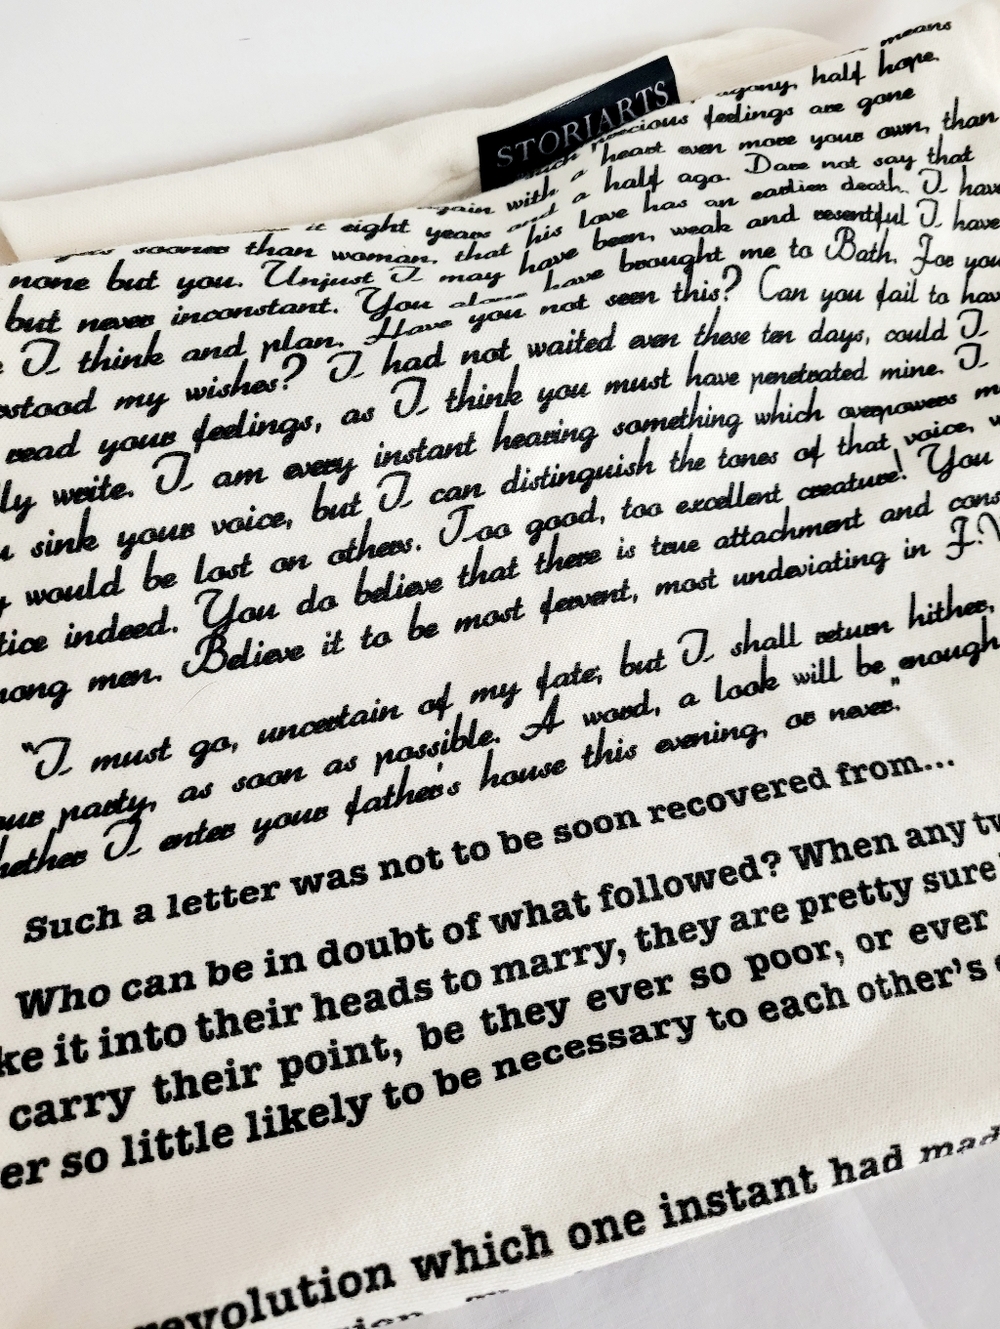 STORIARTS
means
agony, half hope.
such precious feelings are gone
again with a heart even more your own, than
it eight years and a half ago. Dare not say that
sooner than woman, that his love has an earlier death. I have
none but you. Unjust I may have been, weak and resentful I have
but never inconstant. You alone have brought me to Bath. For you
I think and plan. Have you not seen this? Can you fail to hav
stood my wishes? I had not waited even these ten days, could I
read your feelings, as I think you must have penetrated mine. I
ly write. I am every instant hearing something which overpowers m
u sink your voice, but I can distinguish the tones of that voice, w
y would be lost on others. Too good, too excellent creature! You
tice indeed. You do believe that there is true attachment and cons
mong men. Believe it to be most fervent, most undeviating in F.W
"I must go, uncertain of my fate; but I shall return hither,
our party, as soon as possible. A word, a look will be enough
hether I enter your father's house this evening, or never."
Such a letter was not to be soon recovered from...
Who can be in doubt of what followed? When any tw
ke it into their heads to marry, they are pretty sure
carry their point, be they ever so poor, or ever
er so little likely to be necessary to each other's
revolution which one instant had mad